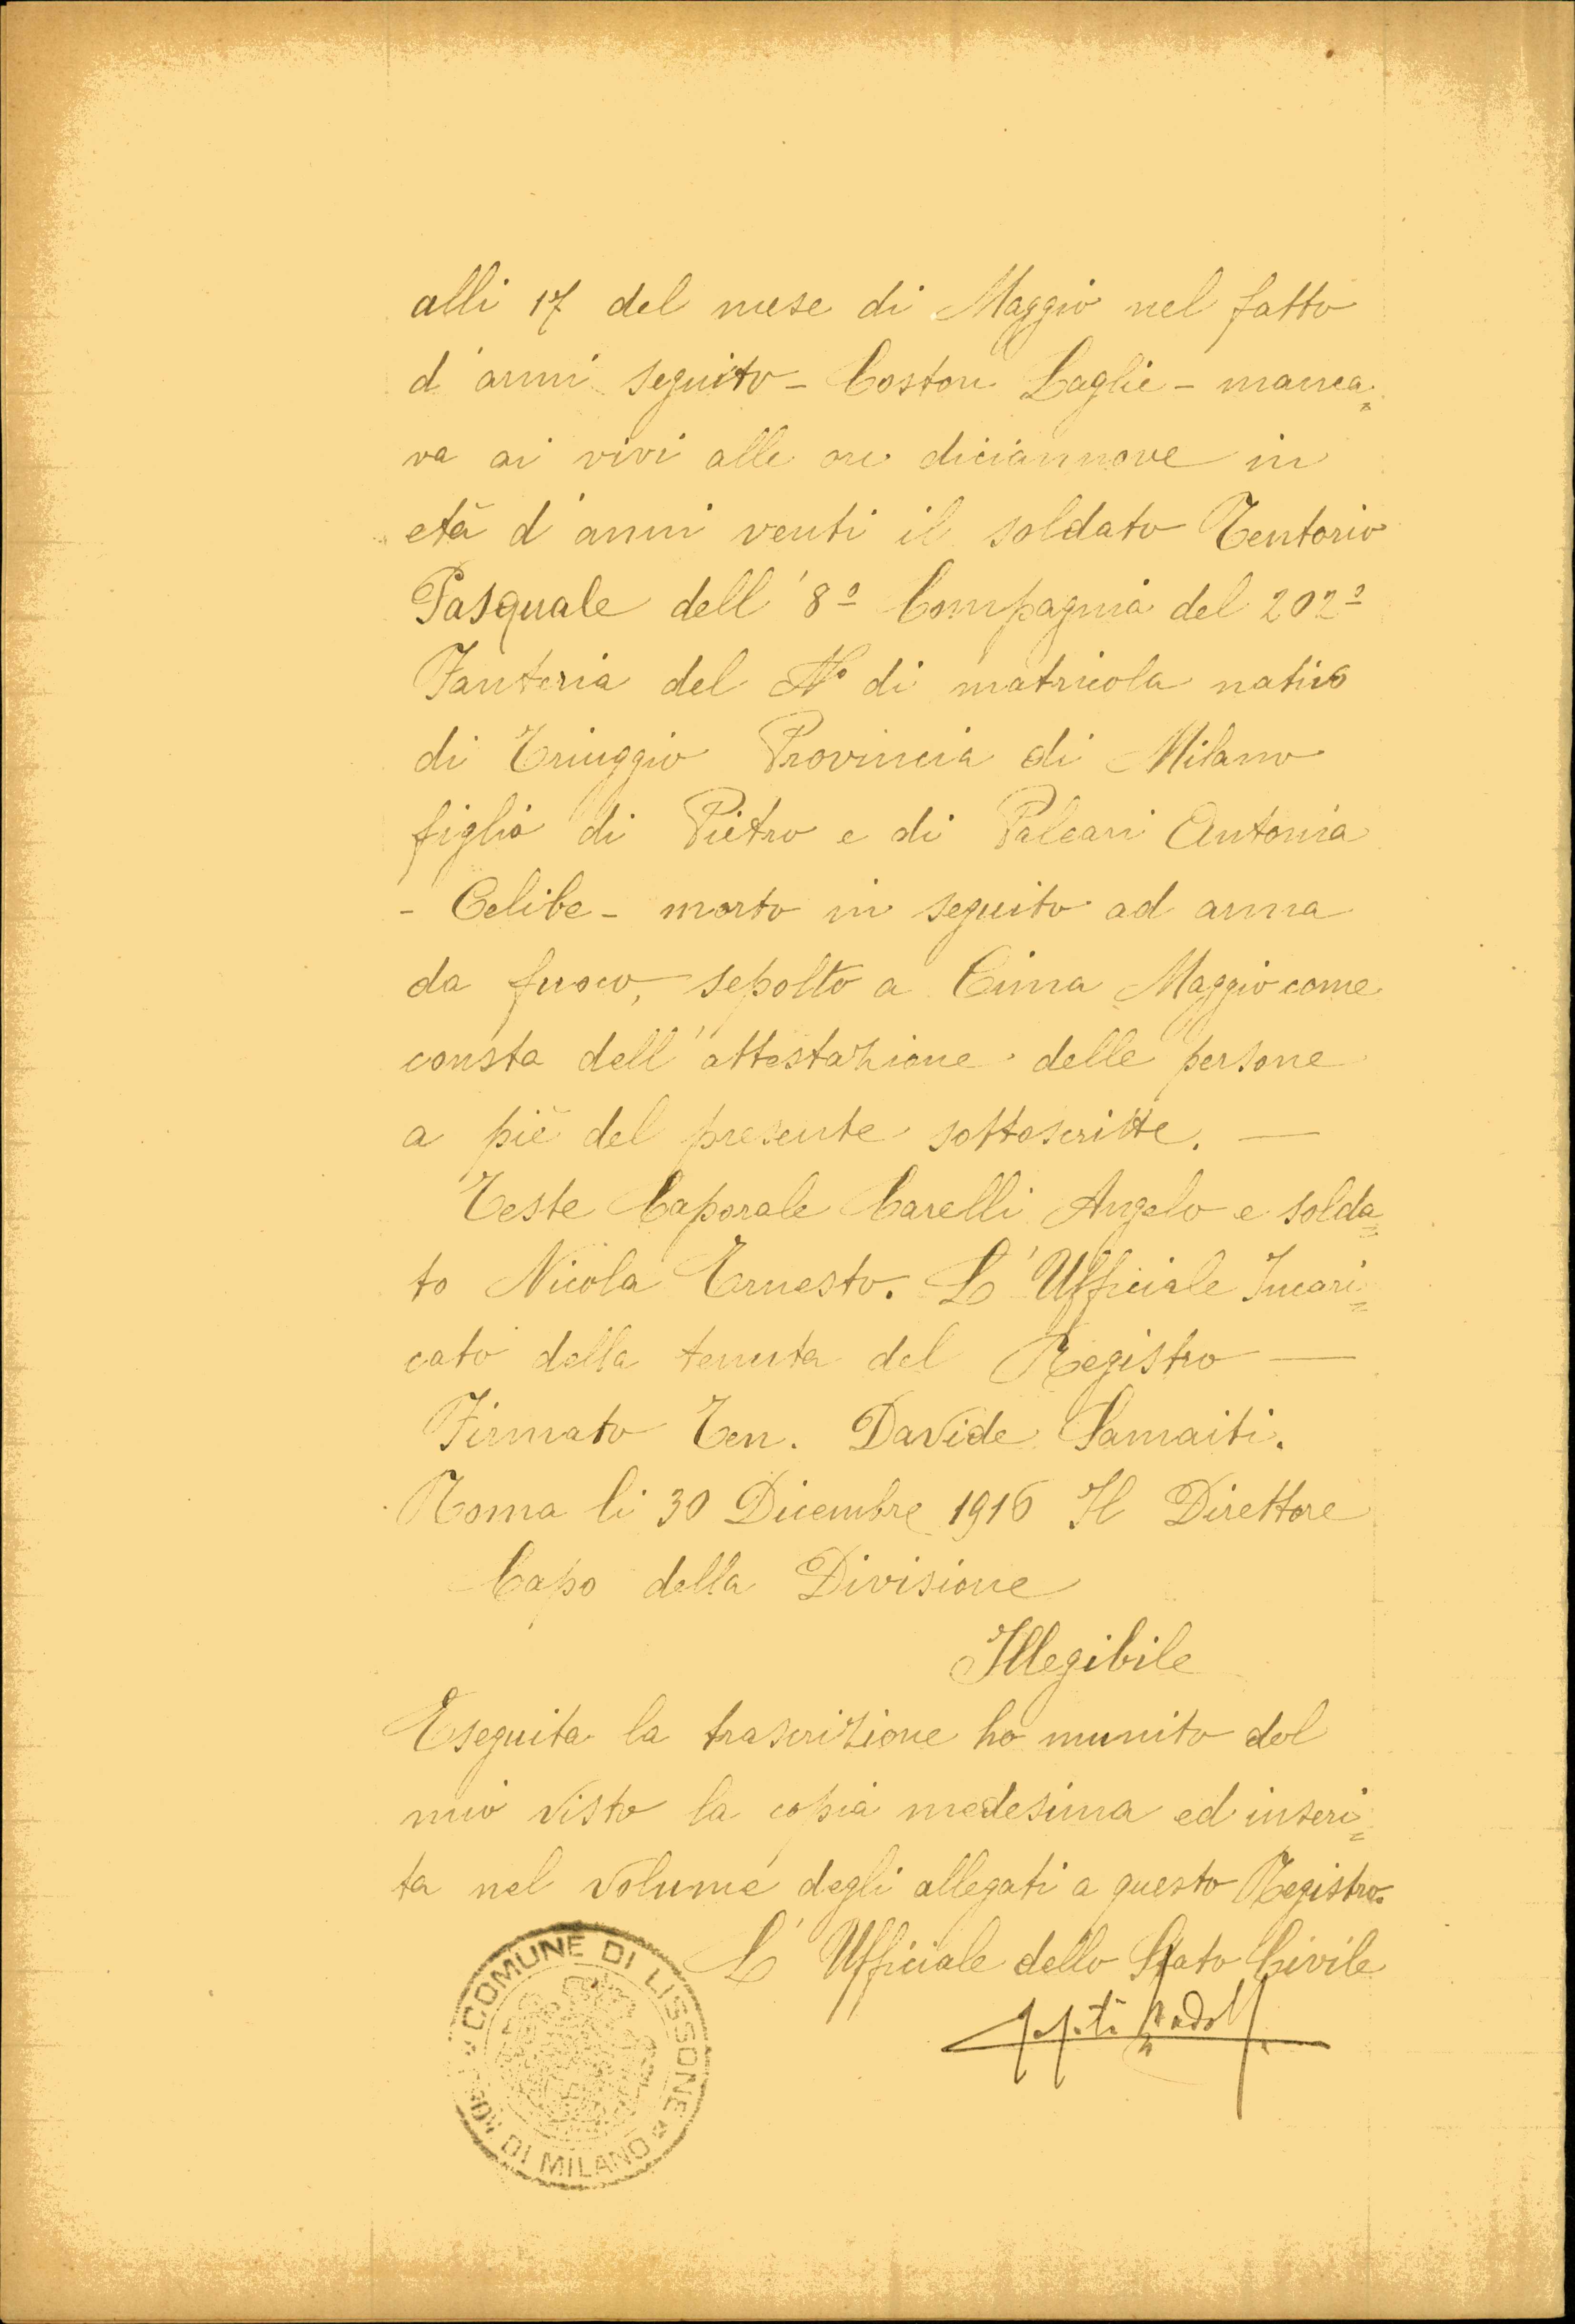 alli 17 del mese di Maggio nel fatto
d'armi seguito - Coston Laglie - manca=
va ai vivi alle ore diciannove in
età d'anni venti il soldato Tentorio
Pasquale dell'8º Compagnia del 202º
Fanteria del Nº di matricola nativo
di Triuggio Provincia di Milano
figlio di Pietro e di Paleari Antonia
- Celibe - morto in seguito ad arma
da fuoco, sepolto a Cima Maggio come
consta dell'attestazione delle persone
a piè del presente sottoscritte. —
Teste Caporale Carelli Angelo e solda=
to Nicola Ernesto. L'Ufficiale Incari=
cato della tenuta del Registro —
Firmato Ten. Davide Samaiti.
Roma li 30 Dicembre 1916 Il Direttore
Capo della Divisione
Illegibile
Eseguita la trascrizione ho munito del
mio visto la copia medesima ed inseri=
ta nel volume degli allegati a questo Registro.
L'Ufficiale dello Stato Civile
COMUNE DI LISSONE
DI MILANO